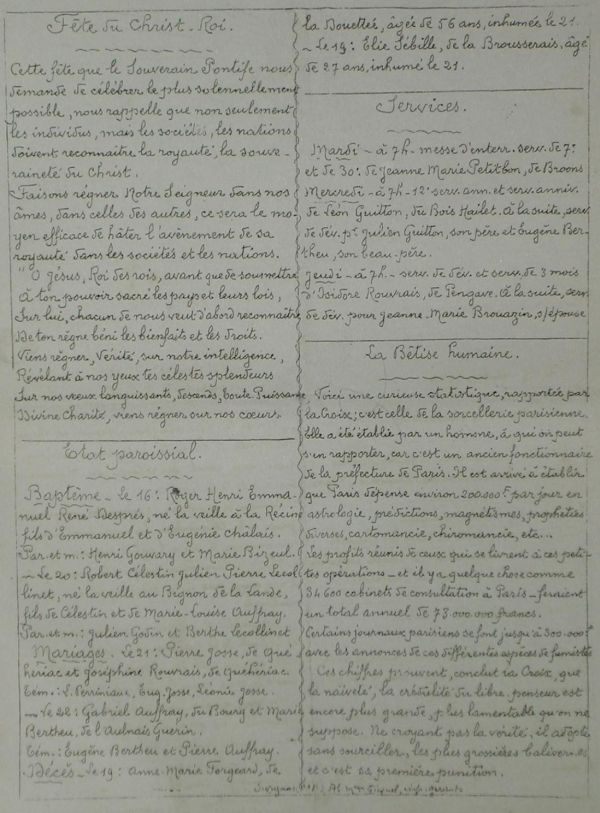 Fête du Christ-Roi.
Cette fête que le Souverain Pontife nous
demande de célébrer le plus solennellement
possible, nous rappelle que non seulement
les individus, mais les sociétés, les nations
doivent reconnaître la royauté, la souve-
raineté du Christ.
Faisons régner Notre Seigneur dans nos
âmes, dans celles des autres, ce sera le mo-
yen efficace de hâter l'avènement de sa
royauté dans les sociétés et les nations.
"O Jésus, Roi des rois, avant que de soumettre
A ton pouvoir sacré les pays et leurs lois,
Sur lui, chacun de nous veut d'abord reconnaître
De ton règne béni les bienfaits et les droits.
Viens régner, Vérité, sur notre intelligence,
Révélant à nos yeux tes célestes splendeurs
Sur nos vœux languissants, descends, toute Puissance
Divine Charité, viens régner sur nos cœurs.
Etat paroissial.
Baptême - le 16: Roger Henri Emma-
nuel René Després, né la veille à la Récine
fils d'Emmuel et d'Eugénie Châlais.
Par. et m.: Henri Gouvary et Marie Bizeul.
- Le 20: Robert Célestin Julien Pierre Lecol
linet, né la veille au Bignon de la Lande,
fils de Célestin et de Marie-Louise Auffray.
Par. et m.: Julien Godin et Berthe Lecollinet
Mariages. Le 21: Pierre Josse, de Qué
hériac et Joséphine Rouvrais, de Quéhériac.
Tém.: V. Perriniaux, Eug. Josse, Léonie Josse.
- Le 22: Gabriel Auffray, du Bourg et Marie
Bertheu, de l'Aulnais Guérin.
Tém.: Eugène Bertheu et Pierre Auffray.
Décès - Le 19: Anne Marie Forgeard, de
la Douettée, âgée de 56 ans, inhumée le 21.
- Le 19: Elie Sébille, de la Brousserais, âgé
de 27 ans, inhumé le 21.
Services.
Mardi - à 7h - messe d'enterr. serv. de 7e
et de 30e de Jeanne Marie Petitbon, de Broons
Mercredi - à 7h - 12e serv. ann. et serv. anniv.
de Léon Guitton, du Bois Hailet. A la suite, serv.
de dév. pr Julien Guitton, son père et Eugène Ber-
theu, son beau-père.
Jeudi - à 7h - serv. de dév. et serv. de 3 mois
d'Isidore Rouvrais, de Pengave. A la suite, serv.
de dév. pour Jeanne-Marie Brouazin, s/épouse
La Bêtise humaine.
Voici une curieuse statistique, rapportée par
la Croix; c'est celle de la sorcellerie parisienne.
Elle a été établie par un homme, à qui on peut
s'en rapporter, car c'est un ancien fonctionnaire
de la préfecture de Paris. Il est arrivé à établir
que Paris dépense environ 200.000f par jour en
astrologie, prédictions, magnétismes, prophéties
diverses, cartomancie, chiromancie, etc...
Les profits réunis de ceux qui se livrent à ces peti-
tes opérations - et il y a quelque chose comme
34600 cabinets de consultation à Paris - feraient
un total annuel de 73 000.000 francs.
Certains journaux parisiens se font jusqu'à 300.000f
avec les annonces de ces différentes espèces de fumistes
Ces chiffres prouvent, conclut la Croix, que
la naïveté, la crédulité du libre-penseur est
encore plus grande, plus lamentable qu'on ne
suppose. Ne croyant pas la vérité, il adopte
sans sourciller, les plus grossières balivernes
et c'est sa première punition.